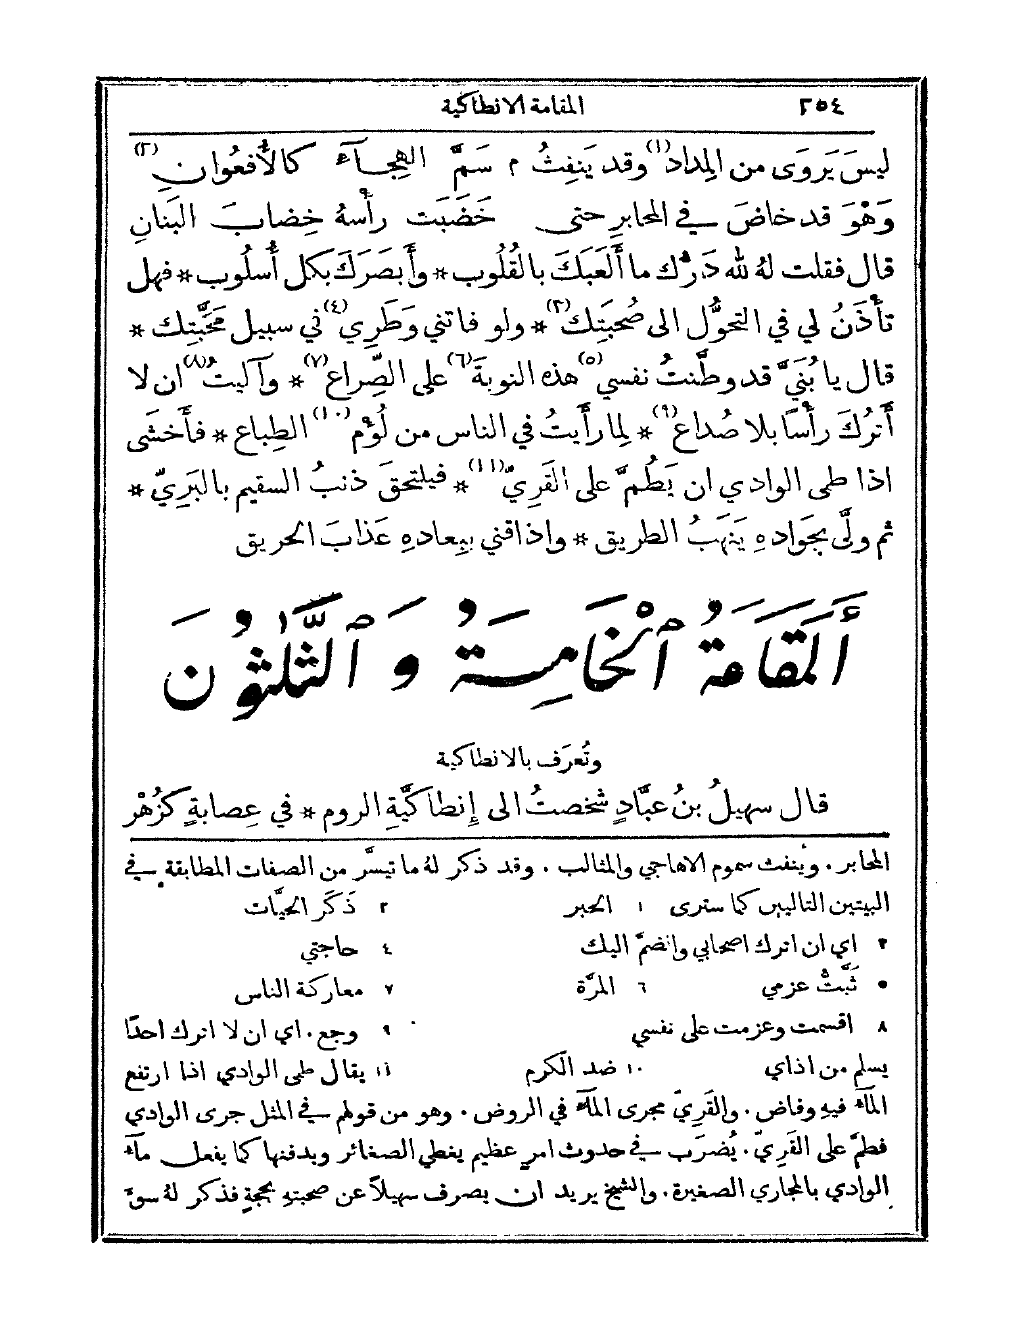 ٢٥٤ المقامة الانطاكية
ليسَ يَروَى من المِدادِ(١) وقد يَنفِثُ م سَمَّ الهِجآءِ كالأُفعُوانِ(٢)
وَهْوَ قد خاضَ في المحابرِ حتى خَضَبَت رأْسهُ خِضابَ البَنانِ
قال فقلت لهُ لله دَرُّك ما أَلعَبَكَ بالقُلُوب * وأَبصَرَكَ بكل أُسلُوب * فهل
تأْذَنُ لي في التحوُّل الى صُحبَتِك(٣) * ولو فاتني وَطَرِي(٤) في سبيل مَحَبَّتِك *
قال يا بُنَيَّ قد وطَّنتُ نفسي(٥) هذه النوبةَ(٦) على الصِّراع(٧) * وآليتُ(٨) ان لا
أَترُكَ رأْسًا بلا صُداع(٩) * لِما رأَيتُ في الناس من لُؤْم(١٠) الطِباع * فأَخشَى
اذا طى الوادي ان يَطُمَّ على القَرِيّ(١١) * فيلتحقَ ذنبُ السقيم بالبَرِيّ *
ثم ولَّى بجَوادهِ يَنهَبُ الطريق * واذاقني ببِعادهِ عَذابَ الحريق
أَلمَقَامَةُ ٱلْخَامِسَةُ وَٱلثَّلٰثُونَ
وتُعرَف بالانطاكية
قال سهيلُ بنُ عبَّادٍ شخصتُ الى إِنطاكيَّةِ الروم * في عِصابةٍ كزُهْر
المحابر . ويُنفث سموم الاهاجي والمثالب . وقد ذكر لهُ ما تيسَّر من الصفات المطابقة في
البيتين التاليين كما سترى ١ الحبر ٢ ذَكَر الحيَّات
٣ اي ان اترك اصحابي وانضمَّ اليك ٤ حاجتي
٥ ثَبَّتُّ عزمي ٦ المرَّة ٧ معاركة الناس
٨ اقسمت وعزمت على نفسي ٩ وجع . اي ان لا اترك احدًا
يسلم من اذاي ١٠ ضد الكرم ١١ يقال طى الوادي اذا ارتفع
المآء فيهِ وفاض . والقَرِيّ مجرى المآء في الروض . وهو من قولهم في المثل جرى الوادي
فطمَّ على القَرِيّ . يُضرَب في حدوث امرٍ عظيم يغطي الصغائر ويدفنها كما يفعل مآء
الوادي بالمجاري الصغيرة . والشيخ يريد ان يصرف سهيلاً عن صحبتهِ بحجةٍ فذكر لهُ سوءَ